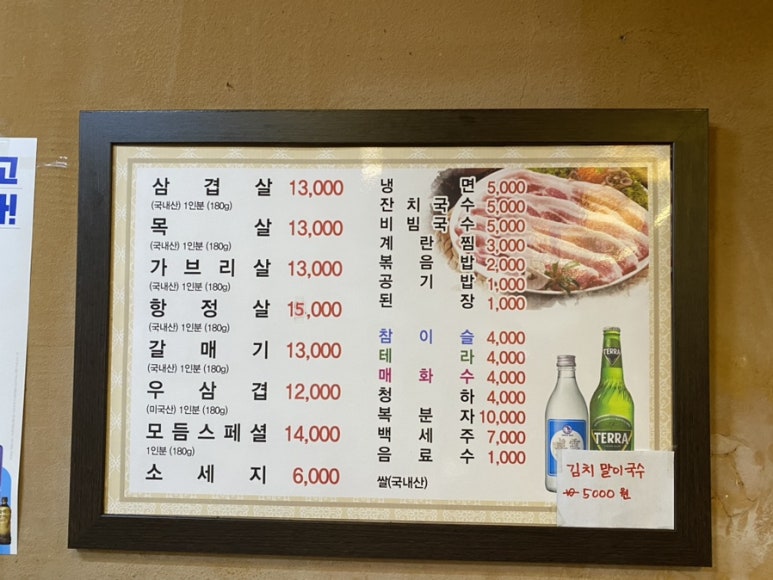 고
!
삼겹살 13,000
(국내산) 1인분 (180g)
목살 13,000
(국내산) 1인분 (180g)
가브리살 13,000
(국내산) 1인분 (180g)
항정살 15,000
(국내산) 1인분 (180g)
갈매기 13,000
(국내산) 1인분 (180g)
우삼겹 12,000
(미국산) 1인분 (180g)
모듬스페셜 14,000
1인분 (180g)
소세지 6,000
냉면 5,000
잔치국수 5,000
비빔국수 5,000
계란찜 3,000
볶음밥 2,000
공기밥 1,000
된장 1,000
참이슬 4,000
테라 4,000
매화수 4,000
청하 4,000
복분자 10,000
백세주 7,000
음료수 1,000
쌀(국내산)
TERRA
TERRA
김치 말이국수
5000 원